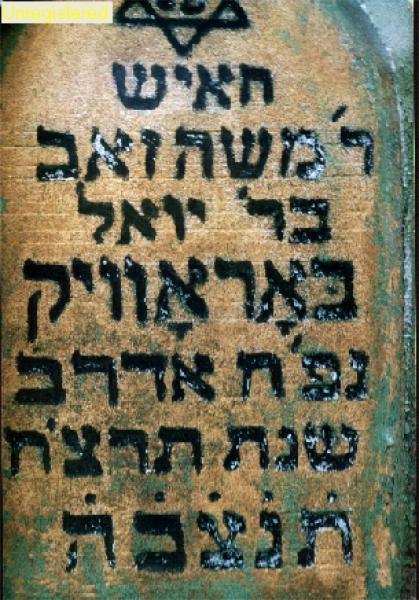 Unregistered
האיש
ר׳ משה זאב
בר׳ יואל
באָראָוויק
נפ׳ ח אדר ב
שנת תרצ׳ח
ת׳נ׳צ׳ב׳ה׳